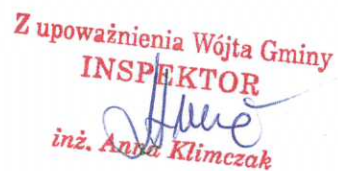 Z upoważnienia Wójta Gminy
INSPEKTOR
inż. Anna Klimczak